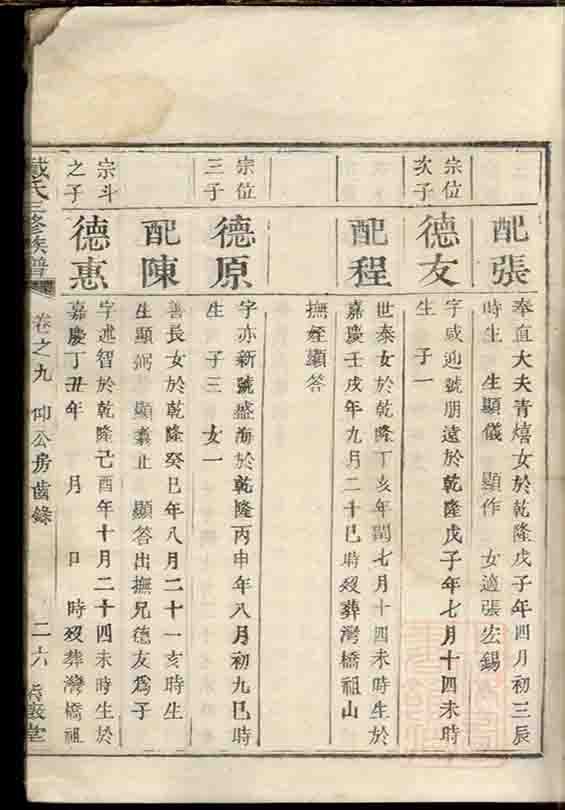 配張
奉直大夫青熺女於乾隆戊子年四月初三辰
時生　生顯儀　顯作　女適張宏錫
宗位
次子
德友
字咸迎號朋遠於乾隆戊子年七月十四未時
生　子一
配程
世泰女於乾隆丁亥年閏七月十四未時生於
嘉慶壬戌年九月二十巳時歿葬灣橋祖山
撫姪顯答
宗位
三子
德原
字亦新號盛海於乾隆丙申年八月初九巳時
生　子三　女一
配陳
善長女於乾隆癸巳年八月二十一亥時生
生顯弼　顯　止　顯答出撫兄德友為子
宗斗
之子
德惠
字述智於乾隆己酉年十月二十四未時生於
嘉慶丁丑年　月　日　時歿葬灣橋祖
戴氏三修族譜
卷之九　仰公房齒錄
二六